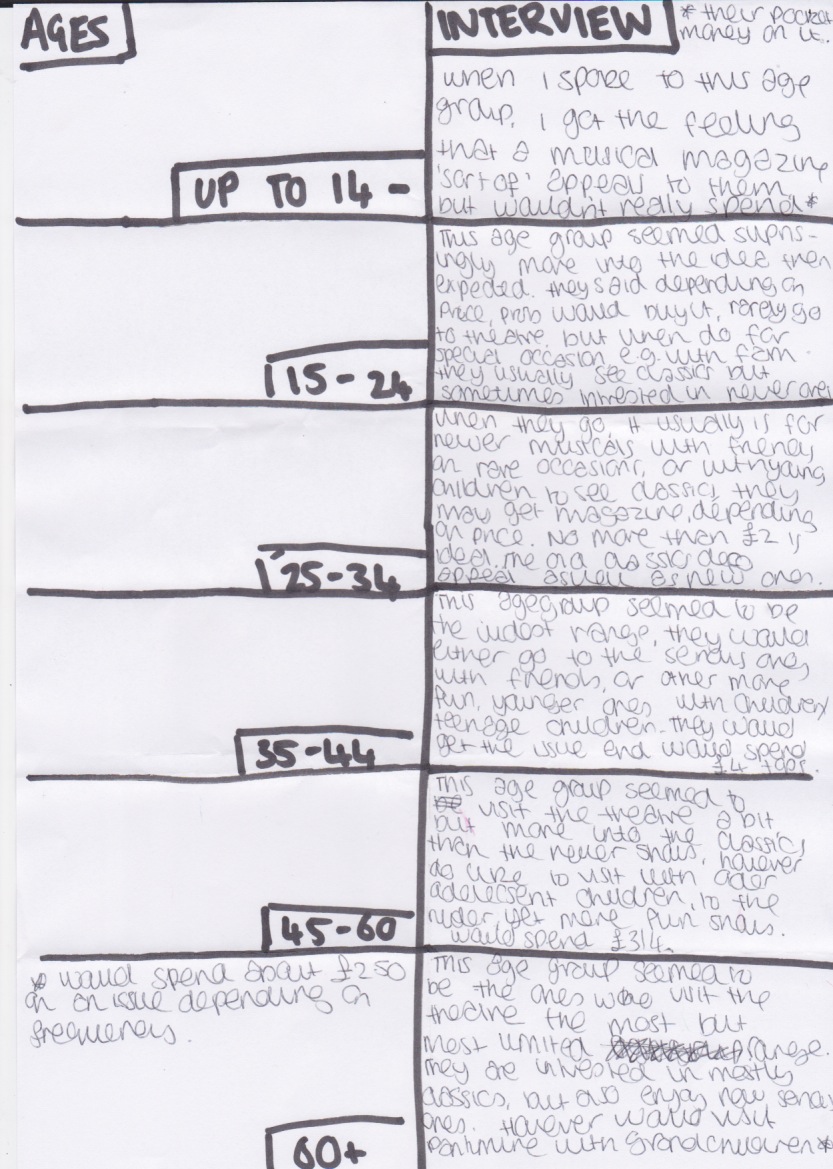 AGES
INTERVIEW
* their pocket
money on it.
when I spoke to this age
group, I got the feeling
that a musical magazine
'sort of' appeals to them
but wouldn't really spend *
UP TO 14 -
This age group seemed supris-
ingly more into the idea then
expected. they said depending on
price, prob would buy it, rarely go
to theatre, but when do for
special occasion e.g. with fam.
they usually see classics but
sometimes intrested in newer ones
15 - 24
When they go it usually is for
newer musicals with friends
on rare occasions, or with young
children to see classics, they
may get magazine, depending
on price. No more than £2 is
ideal. the old classics does
appeal aswell as new ones.
25-34
This age group seemed to be
the widest range, they would
either go to the serious ones
with friends, or other more
fun, younger ones with children/
teenage children. they would
get the issue and would spend
£4
35-44
This age group seemed to
visit the theatre a bit
but more into the classics
than the newer shows, however
do like to visit with older
adolecsent children, to the
ruder yet more fun shows.
would spend £3/4.
45-60
* would spend about £2.50
on an issue depending on
frequency.
This age group seemed to
be the ones who visit the
theatre the most but
most limited range.
they are intrested in mostly
classics, but also enjoy new serious
ones. However would visit
pantimime with grandchildren *
60+